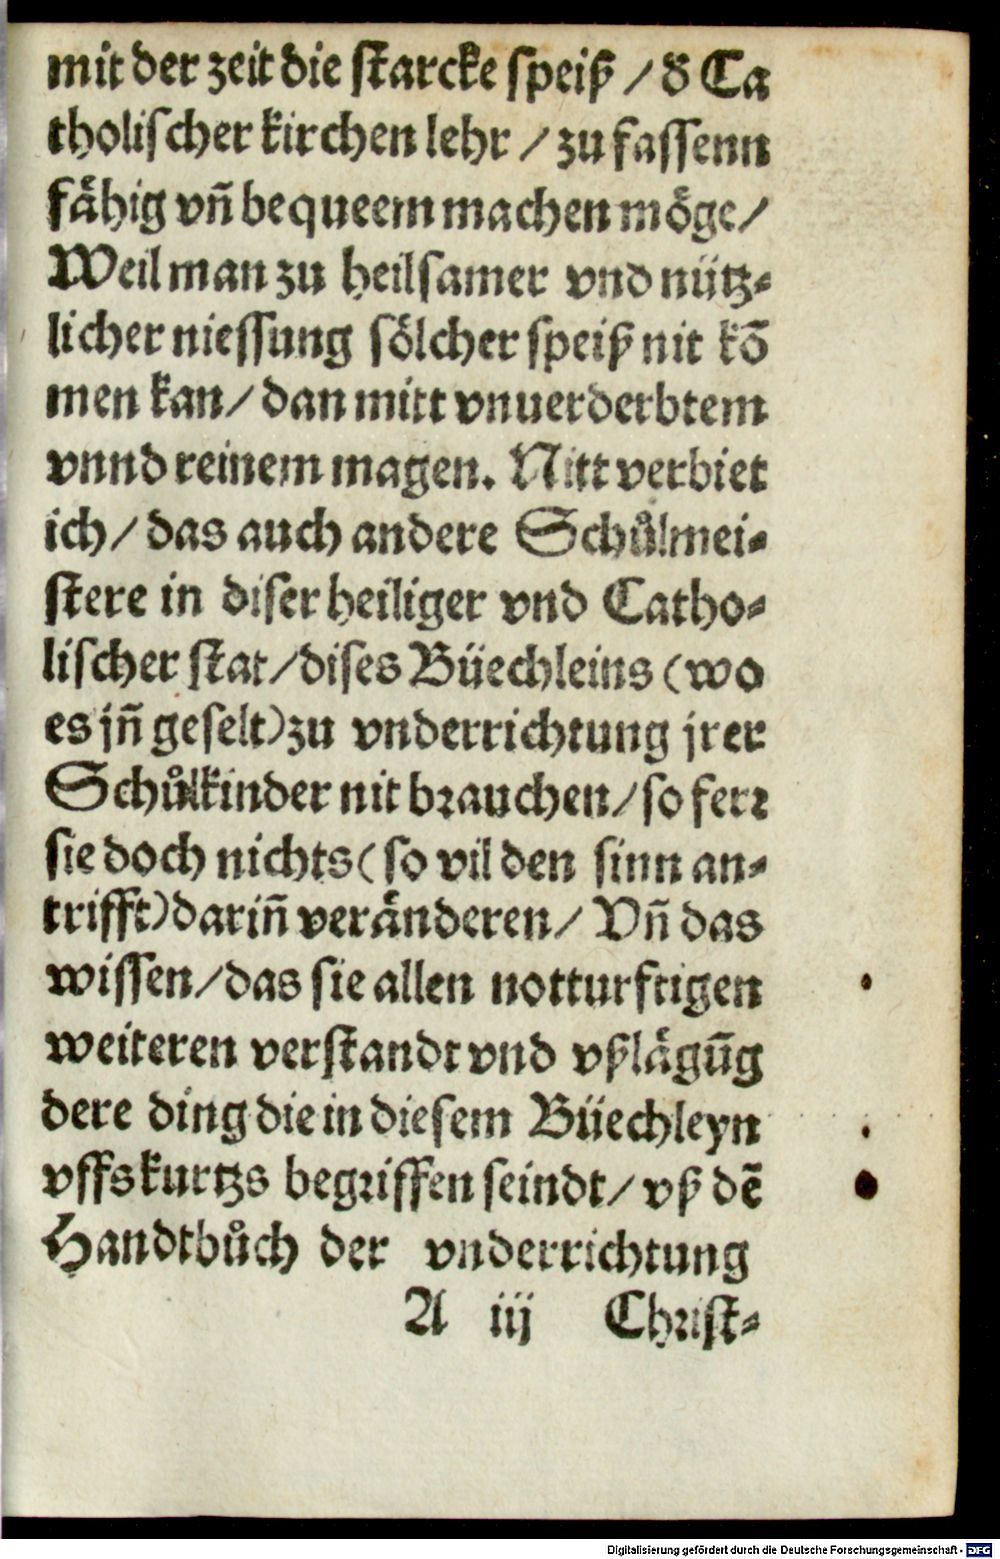 mit der zeit die starcke speiß /ď Ca
tholischer kirchen lehr / zu fassenn
fähig vnñ bequeem machen möge/
Weil man zu heilsamer vnd nütz-
licher niessung sölcher speiß nit kõ
men kan/ dan mitt vnuerderbtem
vnnd reinem magen. Nitt verbiet
ich/ das auch andere Schůlmei-
stere in diser heiliger vnd Catho-
lischer stat/dises Büechleins (wo
es jñ geselt) zu vnderrichtung jrer
Schůlkinder nit brauchen/so ferr
sie doch nichts (so vil den sinn an-
trifft) dariñ veränderen/ Vñ das
wissen/das sie allen notturftigen
weiteren verstandt vnd vßlägũg
dere ding die in diesem Büechleyn
vffs kurtzs begriffen seindt/ vß dẽ
Handtbůch der vnderrichtung
A iij Christ-
Digitalisierung gefördert durch die Deutsche Forschungsgemeinschaft - DFG